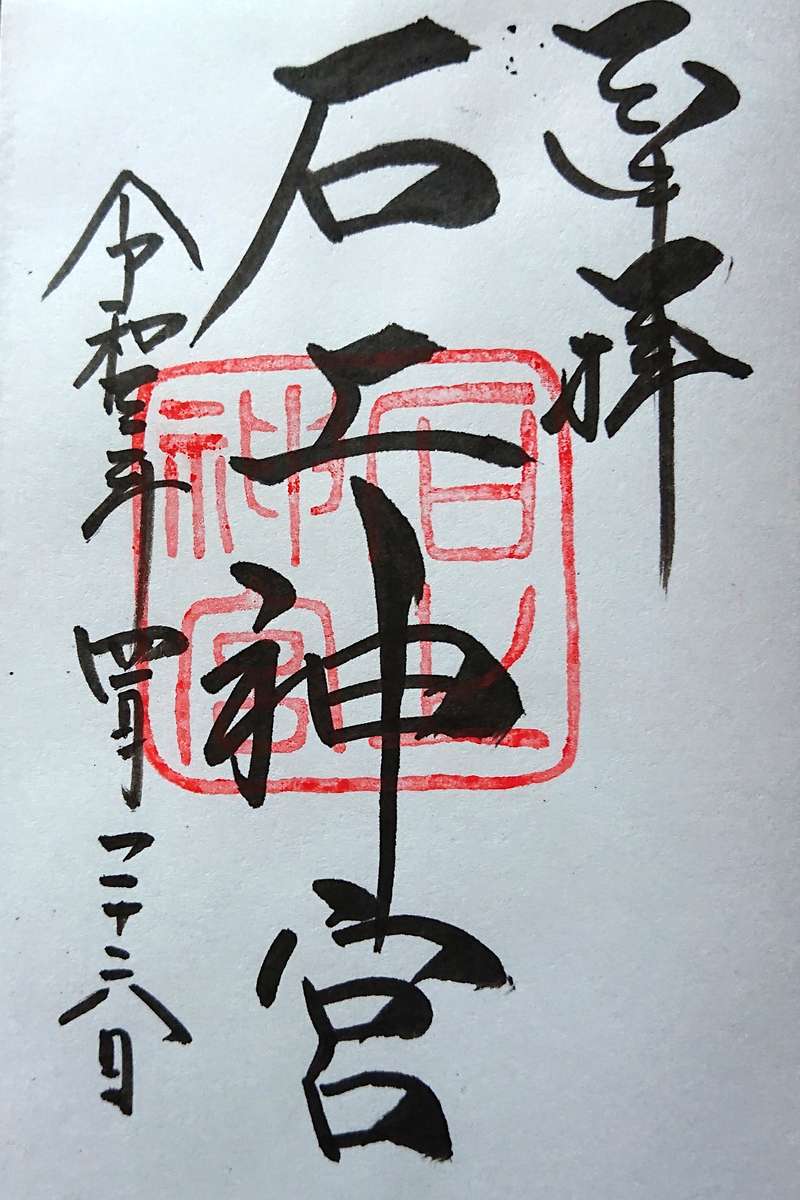 遥拝
石上神宮
令和三年四月二十六日
石上
神宮